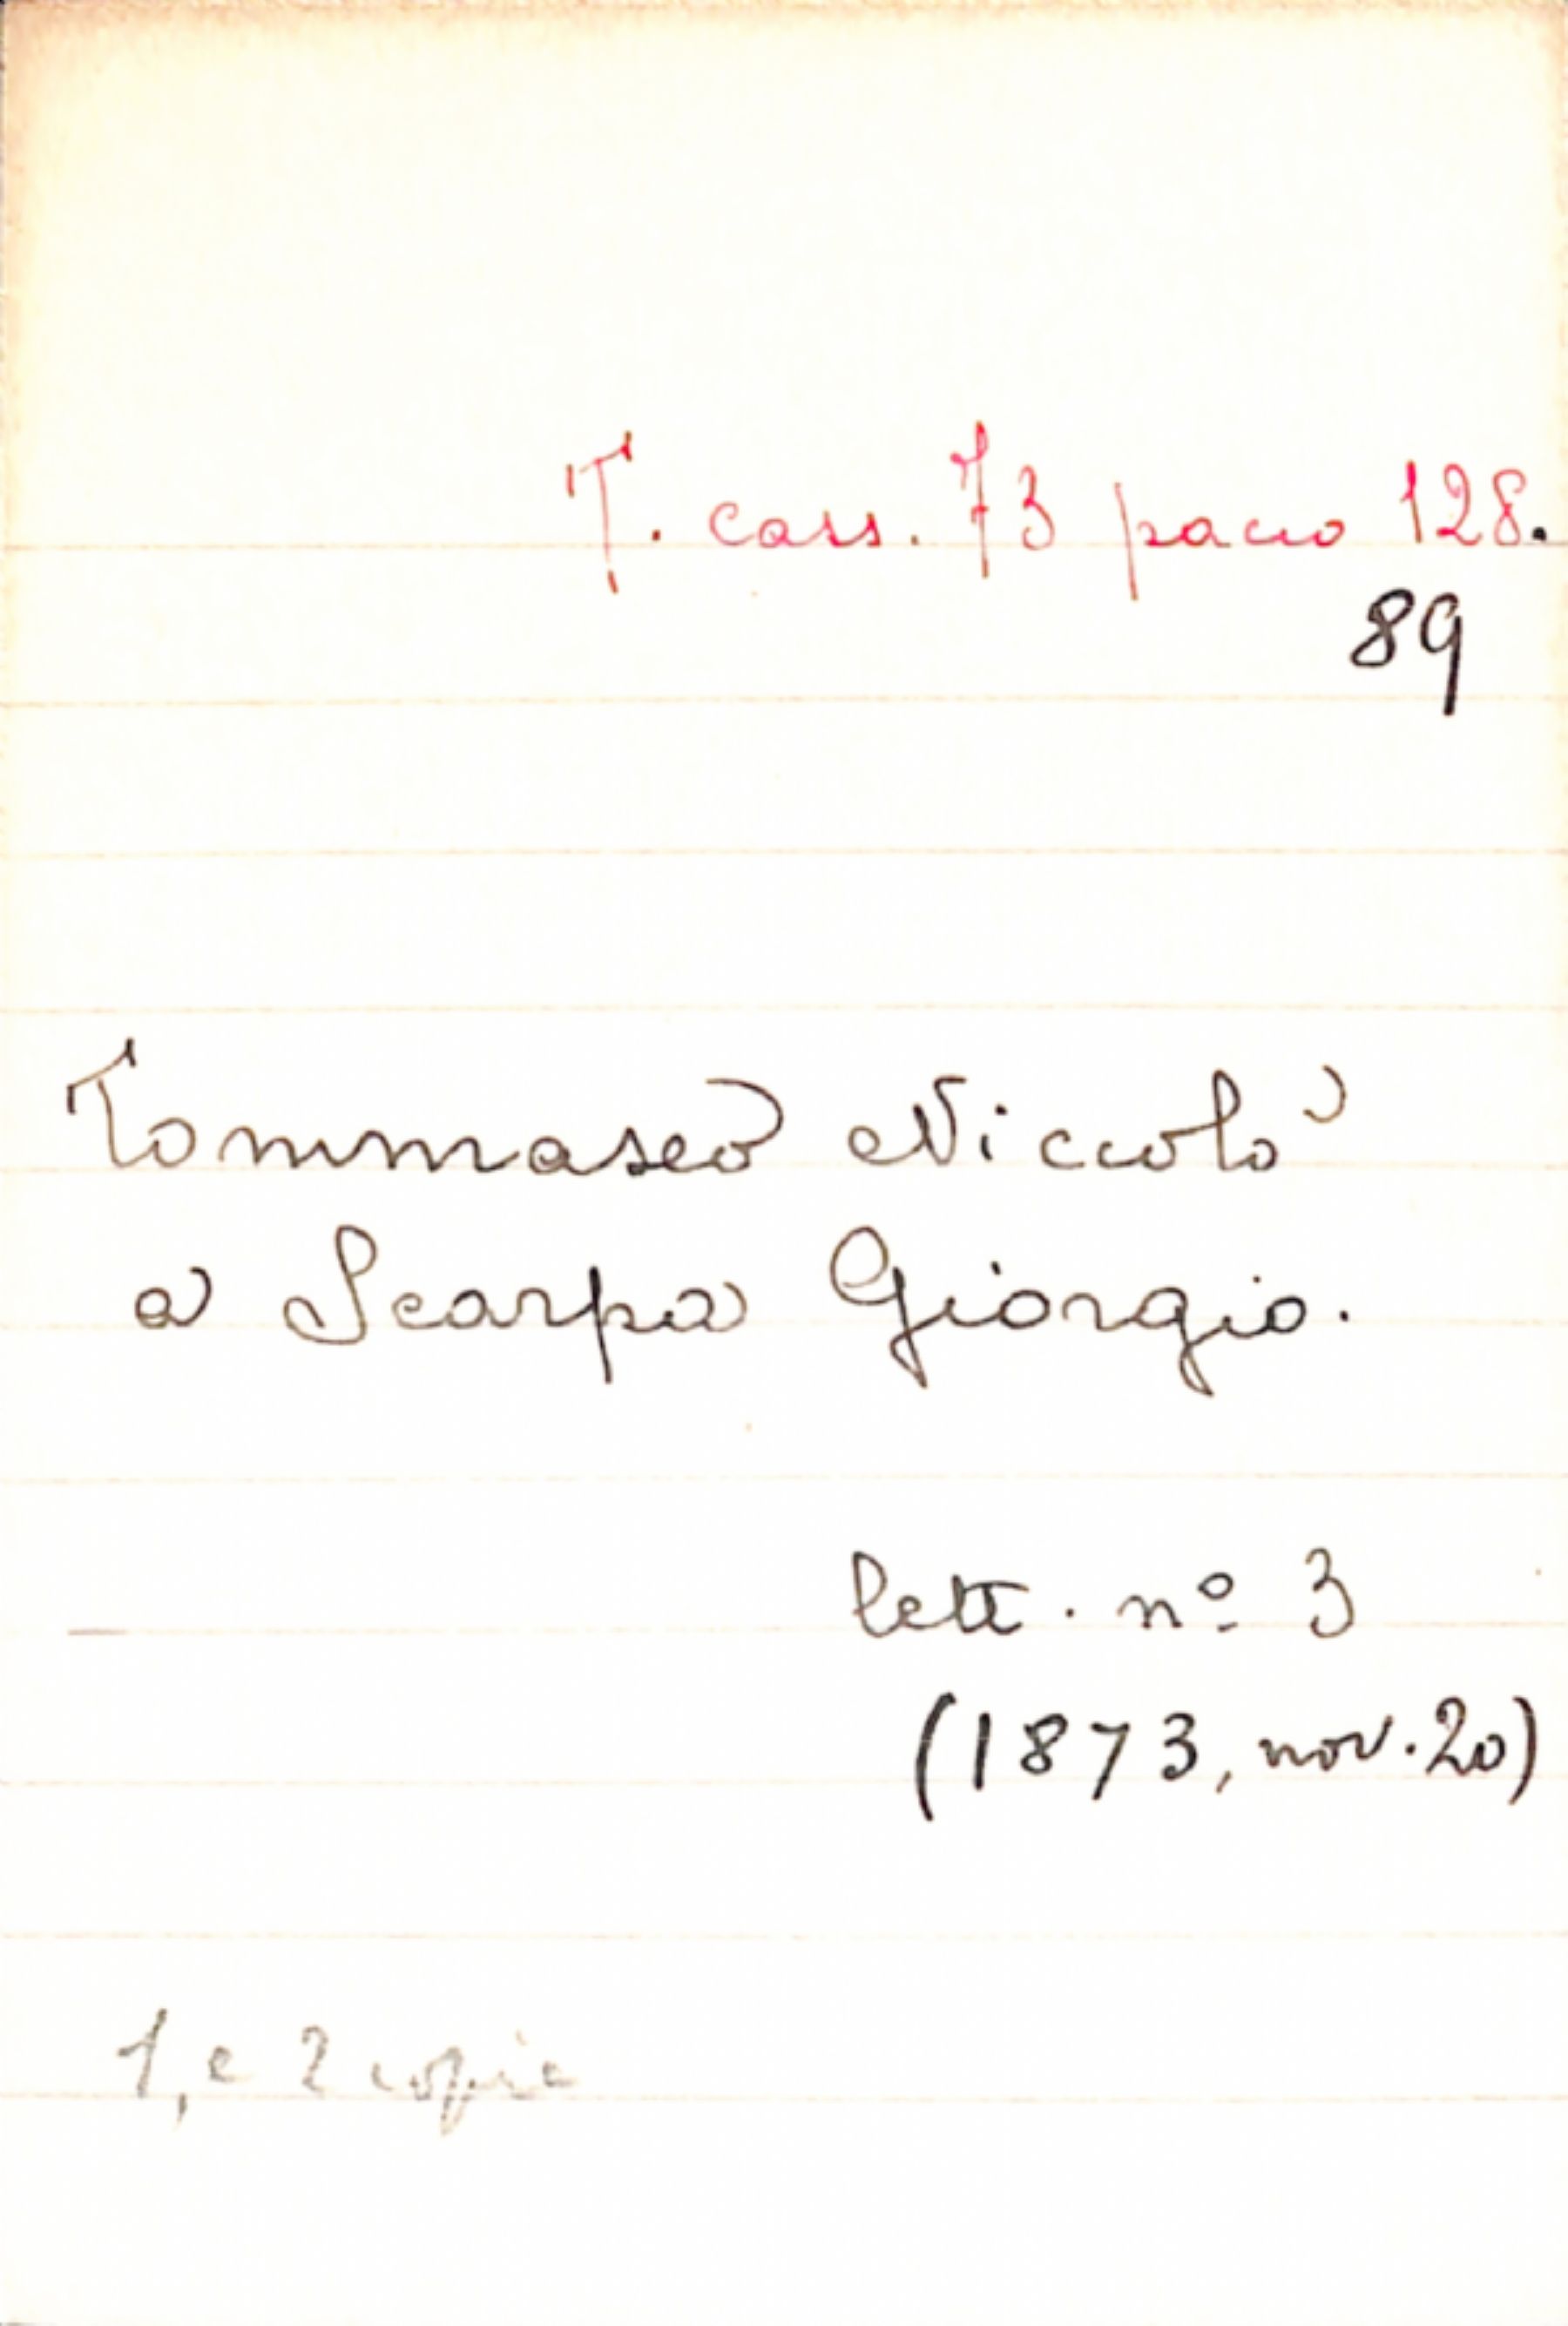 T. cass. 73 pacco 128.
89
Tommaseo Niccolò
a Scarpa Giorgio.
lett. nº 3
(1873, nov. 20)
1, e 2 copie